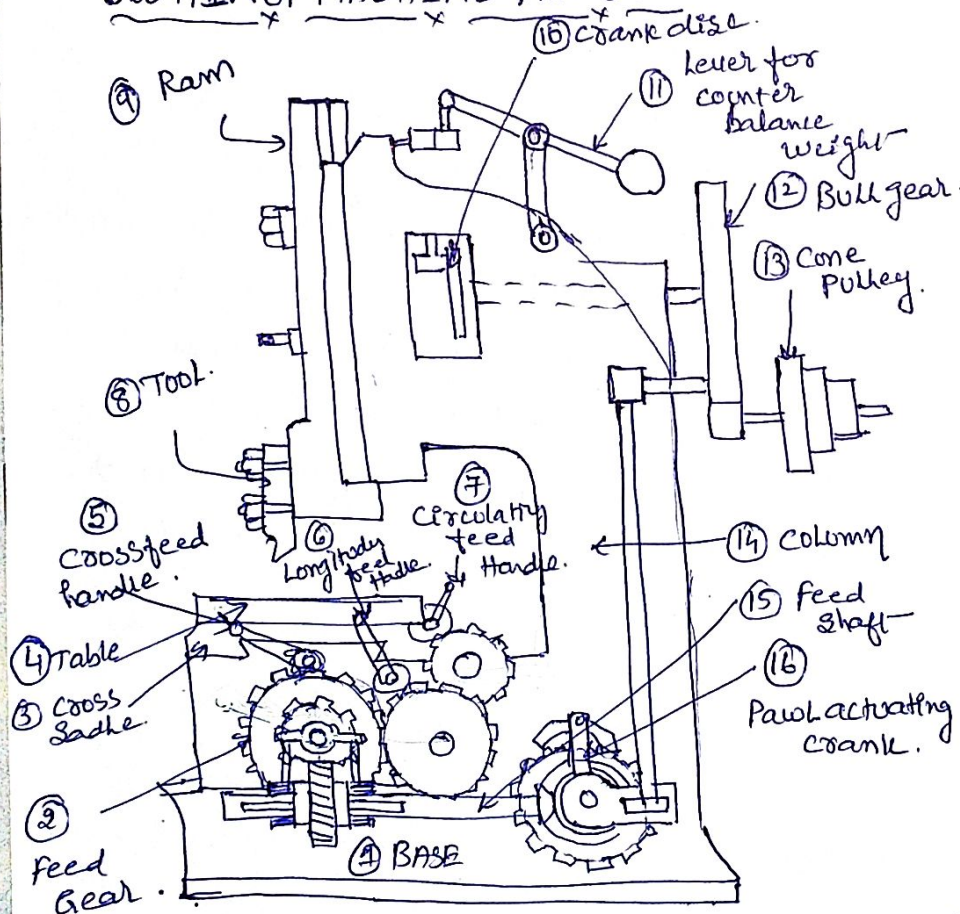 ⑩ Crank disc.
⑨ Ram
⑪ Lever for
counter
balance
weight
⑫ Bull gear.
⑬ Cone
Pulley.
⑧ TOOL.
⑦
Circulatry
feed
Handle.
⑤
Crossfeed
handle.
⑥
feed
⑭ Column
⑮ feed
shaft
④ Table
③ cross
Sadle.
⑯
Pawl actuating
crank.
②
feed
Gear.
① BASE